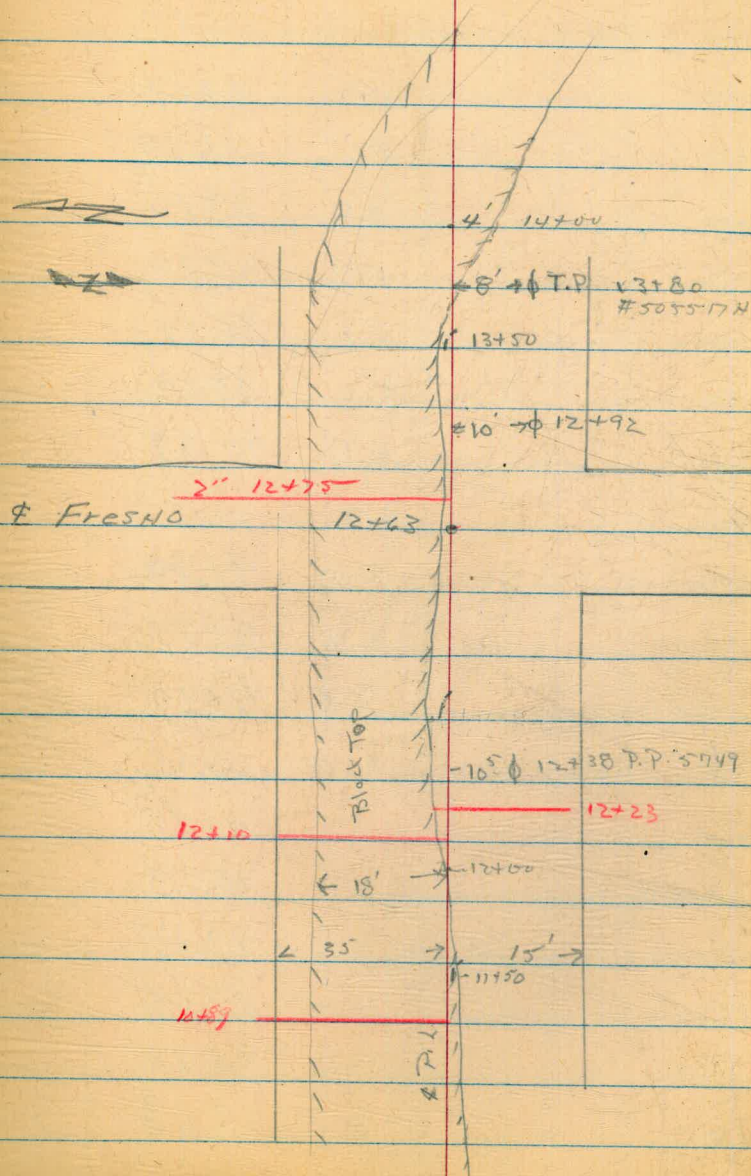 4' 14+00
8' ϕ T.P. 13+80
#505517H
1' 13+50
10' → ϕ 12+92
2" 12+75
℄ Fresno
12+63
Black Top
10⁵ ϕ 12+38 P.P. 5749
12+23
12+10
12+00
← 18' →
← 35 →
15' →
1' 11+50
10+89
℄ P.L